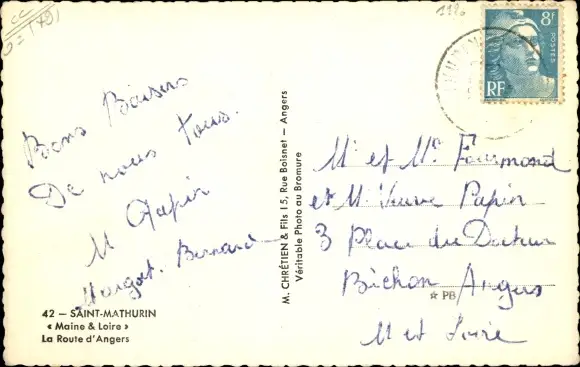 1186
8F
POSTES
RF
Bons Baisers
De nous tous.
M Papin
Margot. Bernard
42 — SAINT-MATHURIN
« Maine & Loire »
La Route d'Angers
M. CHRÉTIEN & Fils 15, Rue Boisnet — Angers
Véritable Photo au Bromure
M et Me Fourmond
et M Veuve Papin
3 Place du Docteur
Bichon Angers
☆ PB
M et Loire